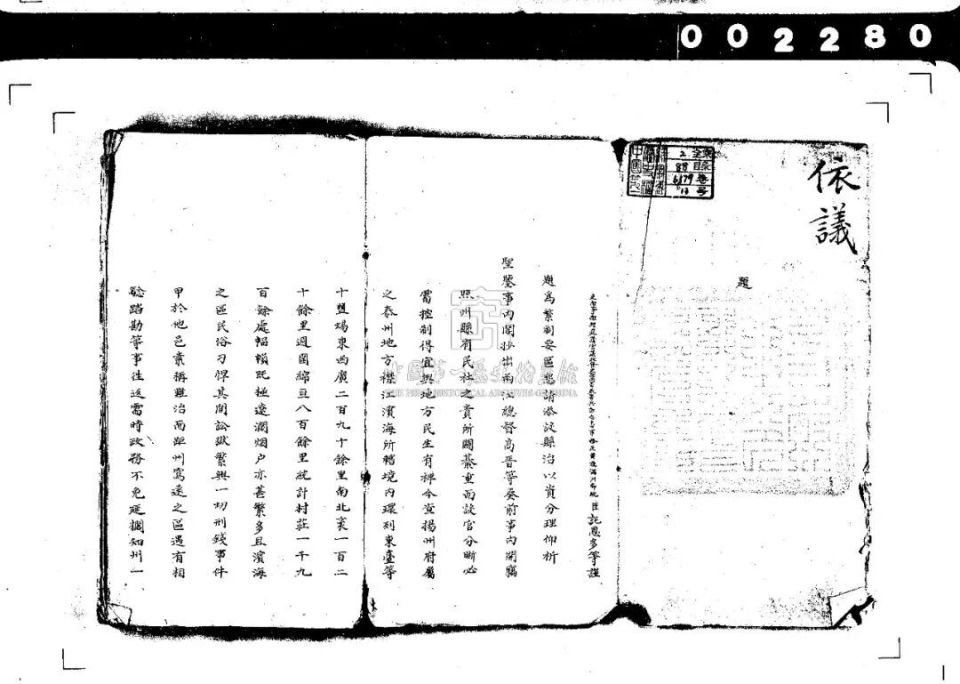 002280
依議
題
臣託恩多等謹
題為繁劇要區懇請添設縣治以資分理仰祈
聖鑒事內閣抄出兩江總督高晉等奏前事內開竊
照州縣有民社之責所關綦重而設官分職必
當控制得宜與地方民生有裨今查揚州府屬
之泰州地方襟江濱海所轄境內環列東臺等
十鹽場東西廣二百九十餘里南北袤一百二
十餘里週圍綿亘八百餘里統計村莊一千九
百餘處幅𢄙既極遼濶烟户亦甚繁多且濱海
之區民俗刁悍其間訟獄繁興一切刑錢事件
甲於他邑素稱難治而距州寫遠之區遇有相
驗踏勘等事往返需時政務不免延擱知州一
中國第一歷史檔案館
THE FIRST HISTORICAL ARCHIVES OF CHINA